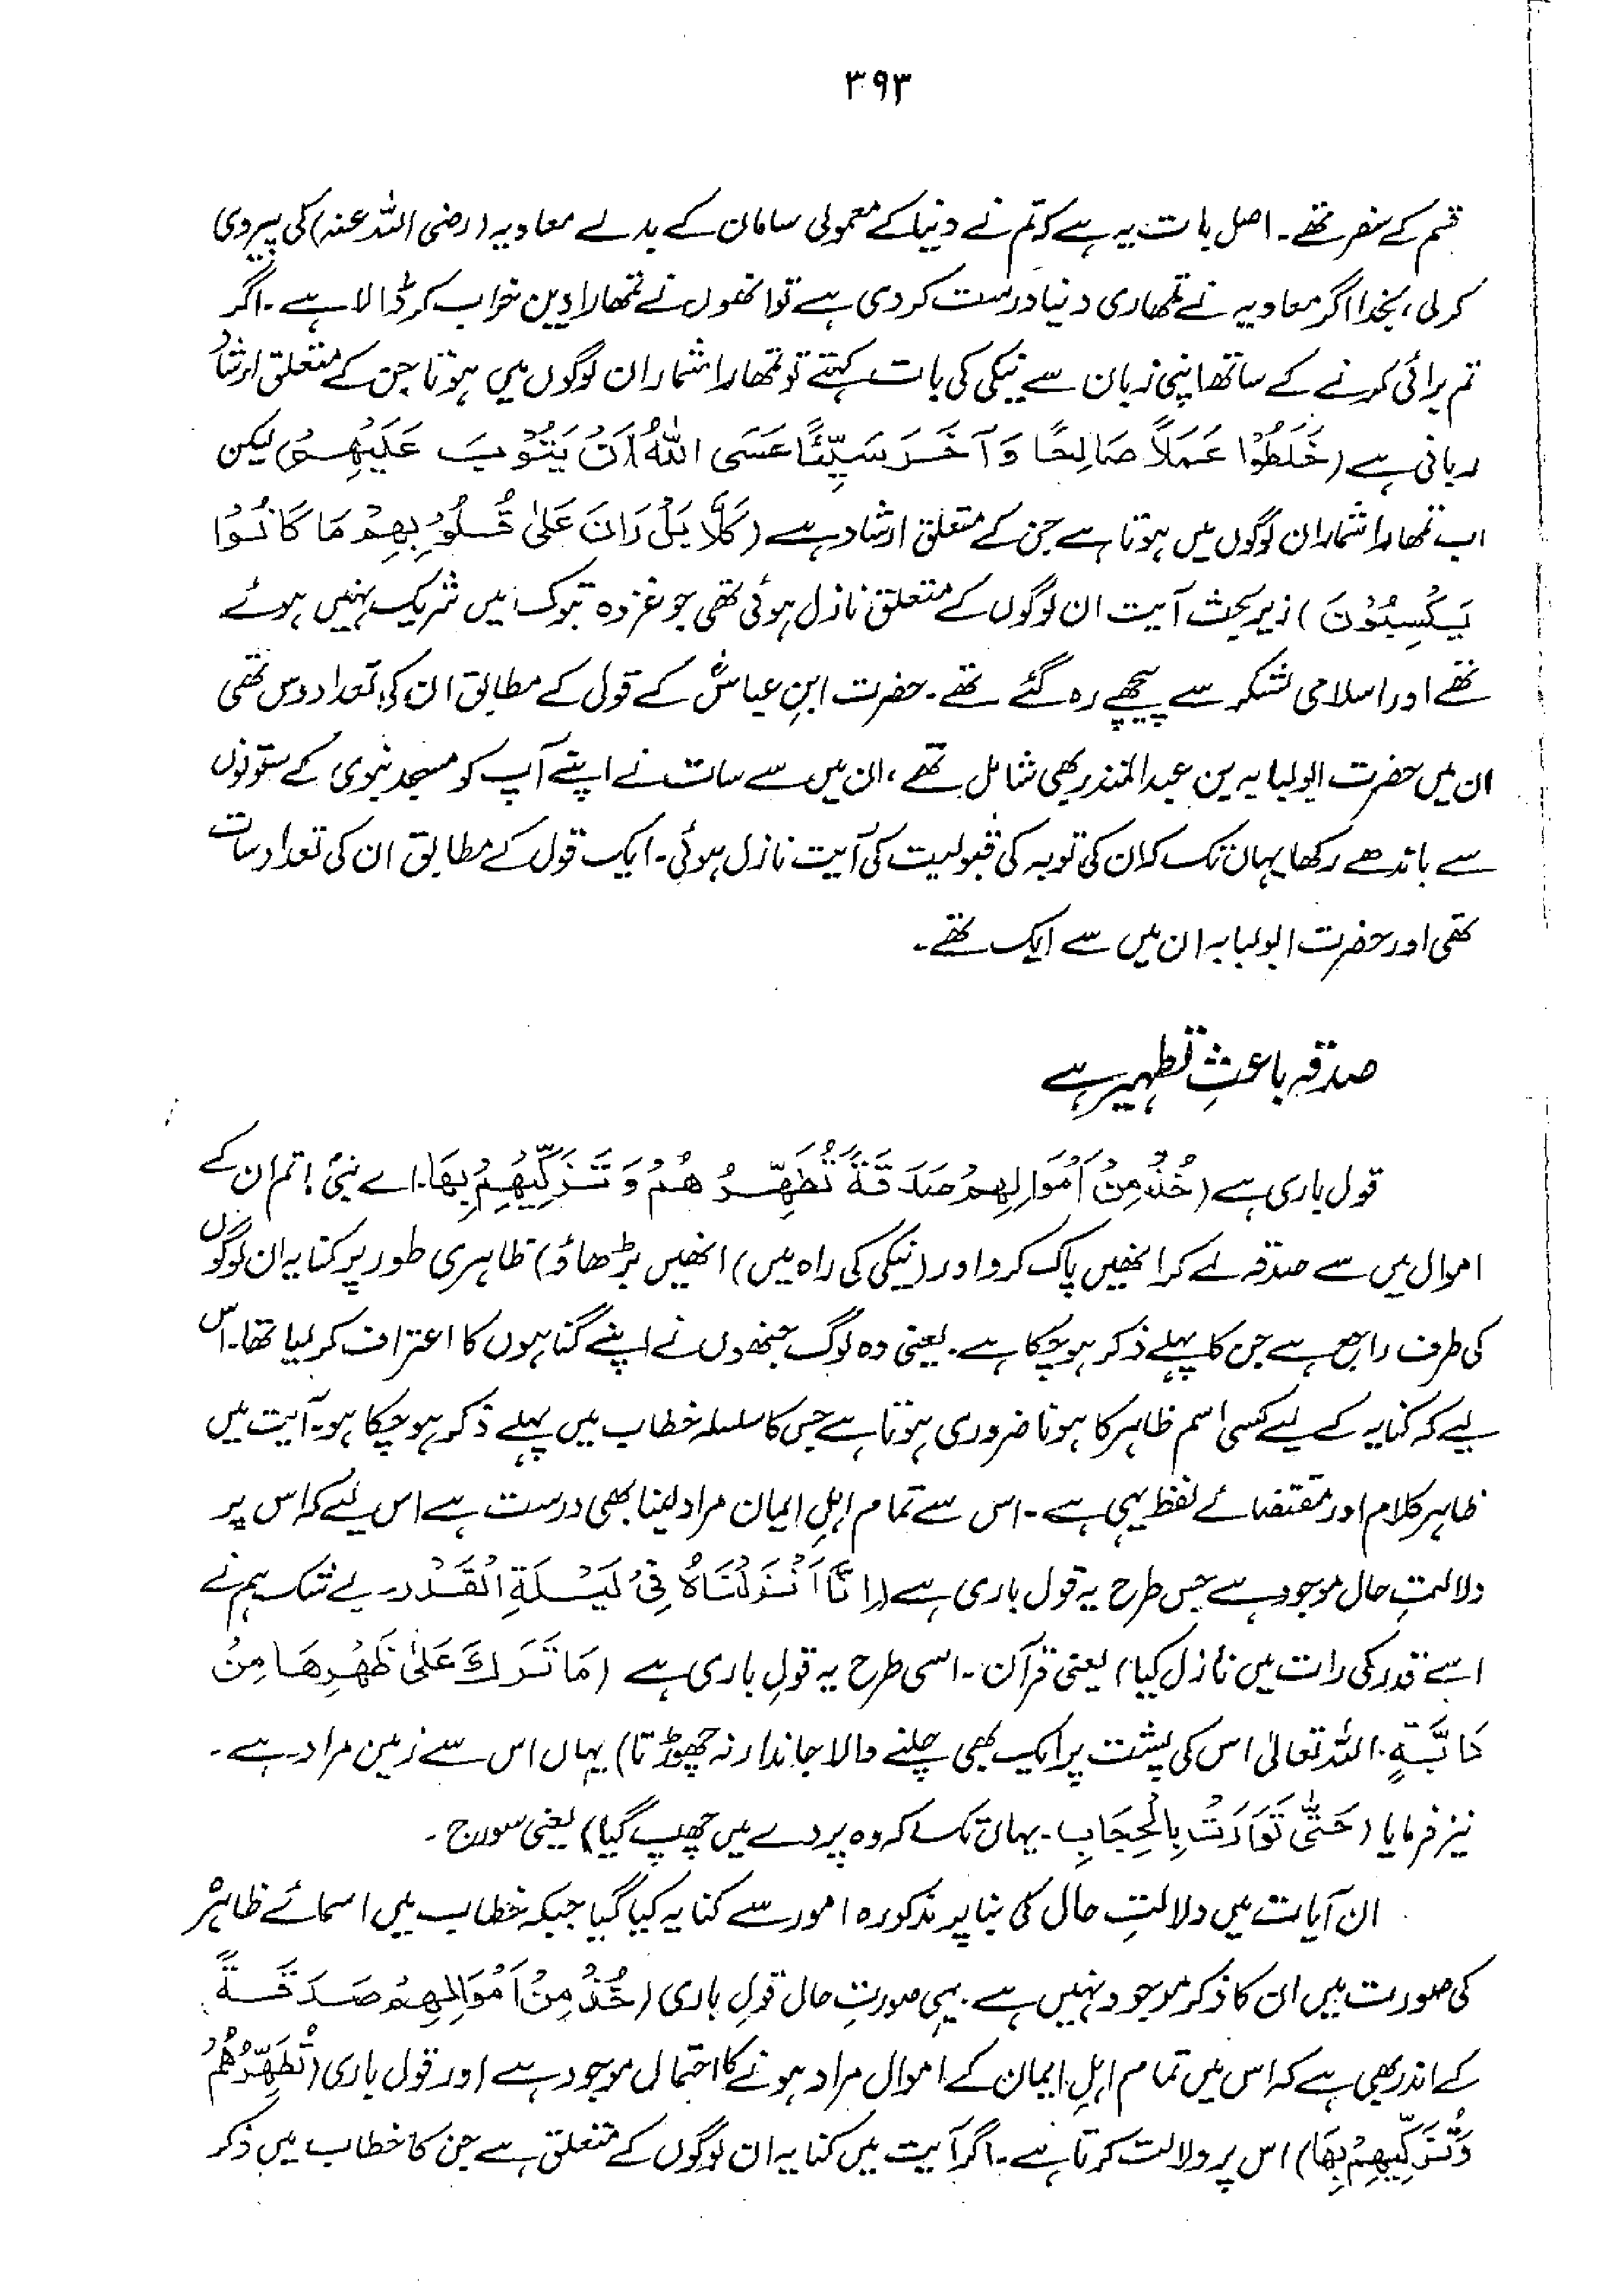 ۳۹۳
قسم کے سفر تھے۔ اصل بات یہ ہے کہ تم نے دنیا کے معمولی سامان کے بدلے معاویہ (رضی اللہ عنہ) کی پیروی
کر لی، بخدا اگر معاویہ نے تمھاری دنیا درست کر دی ہے تو انھوں نے تمھارا دین خراب کر ڈالا ہے۔ اگر
تم برائی کرنے کے ساتھ اپنی زبان سے نیکی کی بات کہتے تو تمھارا شمار ان لوگوں میں ہوتا جن کے متعلق ارشاد
ربانی ہے (خَلَطُوْا عَمَلاً صَالِحًا وَآخَرَ سَيِّئًا عَسَى اللّٰهُ اَنْ يَتُوْبَ عَلَيْهِمْ) لیکن
اب تمھارا شمار ان لوگوں میں ہوتا ہے جن کے متعلق ارشاد ہے (كَلَّا بَلْ رَانَ عَلىٰ قُلُوْبِهِمْ مَا كَانُوْا
يَكْسِبُوْنَ) زیر بحث آیت ان لوگوں کے متعلق نازل ہوئی تھی جو غزوہ تبوک میں شریک نہیں ہوئے
تھے اور اسلامی لشکر سے پیچھے رہ گئے تھے۔ حضرت ابنِ عباسؓ کے قول کے مطابق ان کی تعداد دس تھی
ان میں حضرت ابولبابہ بن عبدالمنذر بھی شامل تھے، ان میں سے سات نے اپنے آپ کو مسجد نبوی کے ستونوں
سے باندھے رکھا یہاں تک کہ ان کی توبہ کی قبولیت کی آیت نازل ہوئی۔ ایک قول کے مطابق ان کی تعداد سات
تھی اور حضرت ابولبابہ ان میں سے ایک تھے۔
صدقہ باعثِ تطہیر ہے
قول باری ہے (خُذْ مِنْ اَمْوَالِهِمْ صَدَقَةً تُطَهِّرُهُمْ وَتُزَكِّيْهِمْ بِهَا۔ اے نبیؐ! تم ان کے
اموال میں سے صدقہ لے کر انھیں پاک کرو اور (نیکی کی راہ میں) انھیں بڑھاؤ) ظاہری طور پر کنایہ ان لوگوں
کی طرف راجع ہے جن کا پہلے ذکر ہو چکا ہے۔ یعنی وہ لوگ جنھوں نے اپنے گناہوں کا اعتراف کر لیا تھا۔ اس
لیے کہ کنایہ کے لیے کسی اسم ظاہر کا ہونا ضروری ہوتا ہے جس کا سلسلہ خطاب میں پہلے ذکر ہو چکا ہو۔ آیت میں
ظاہر کلام اور مقتضائے لفظ یہی ہے۔ اس سے تمام اہلِ ایمان مراد لینا بھی درست ہے اس لیے کہ اس پر
دلالتِ حال موجود ہے جس طرح یہ قول باری ہے (اِنَّا اَنْزَلْنَاهُ فِيْ لَيْلَةِ الْقَدْر۔ بے شک ہم نے
اسے قدر کی رات میں نازل کیا) یعنی قرآن۔ اسی طرح یہ قولِ باری ہے (مَا تَرَكَ عَلىٰ ظَهْرِهَا مِنْ
دَابَّةٍ۔ اللہ تعالیٰ اس کی پشت پر ایک بھی چلنے والا جاندار نہ چھوڑتا) یہاں اس سے زمین مراد ہے۔
نیز فرمایا (حَتّٰى تَوَارَتْ بِالْحِجَابِ۔ یہاں تک کہ وہ پردے میں چھپ گیا) یعنی سورج۔
ان آیات میں دلالتِ حال کی بنا پر مذکورہ امور سے کنایہ کیا گیا جبکہ خطاب میں اسمائے ظاہر
کی صورت میں ان کا ذکر موجود نہیں ہے۔ یہی صورتِ حال قولِ باری (خُذْ مِنْ اَمْوَالِهِمْ صَدَقَةً
کے اندر بھی ہے کہ اس میں تمام اہلِ ایمان کے اموال مراد ہونے کا احتمال موجود ہے اور قول باری (تُطَهِّرُهُمْ
وَتُزَكِّيْهِمْ بِهَا) اس پر دلالت کرتا ہے۔ اگر آیت میں کنایہ ان لوگوں کے متعلق ہے جن کا خطاب میں ذکر